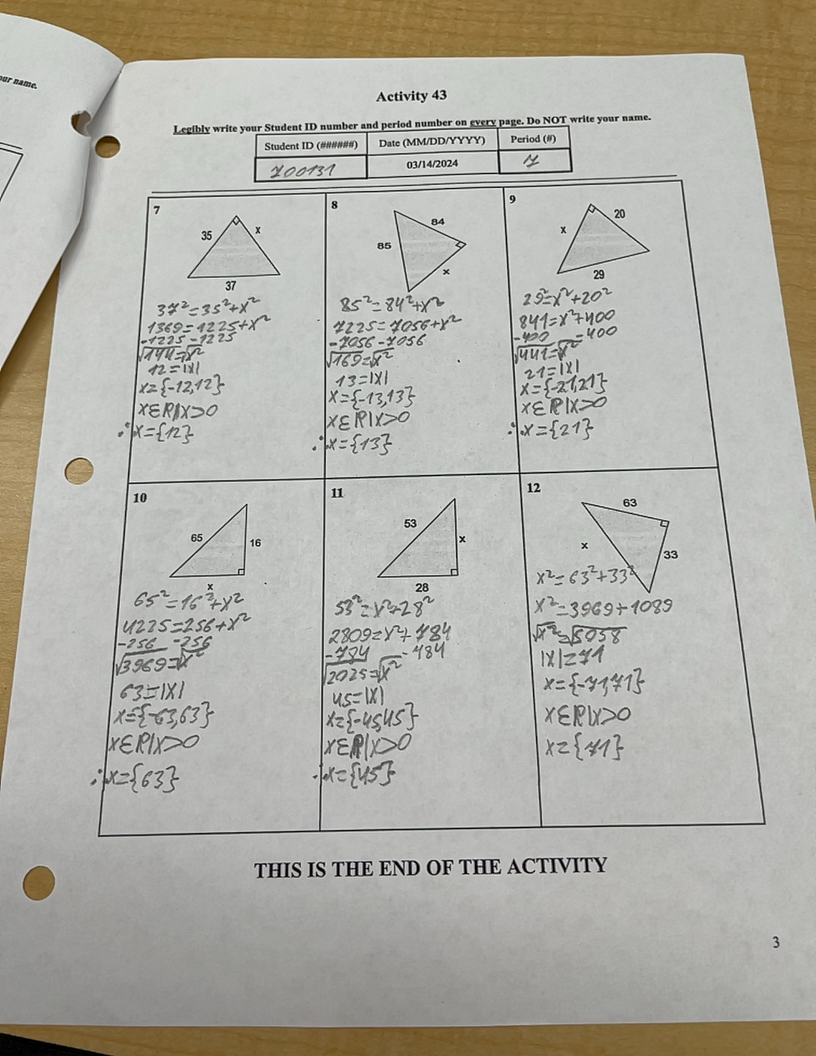 our name.
Activity 43
Legibly write your Student ID number and period number on every page. Do NOT write your name.
Student ID (######) Date (MM/DD/YYYY) Period (#)
700131 03/14/2024 7
7
35 x
37
37²=35²+x²
1369=1225+x²
-1225 -1225
√144=√x²
12=|x|
x={-12,12}
x∈ℝ|x>0
∴x={12}
8
84
85
x
85²=84²+x²
7225=7056+x²
-7056 -7056
√169=√x²
13=|x|
x={-13,13}
x∈ℝ|x>0
∴x={13}
9
20
x
29
29²=x²+20²
841=x²+400
-400 -400
√441=√x²
21=|x|
x={-21,21}
x∈ℝ|x>0
∴x={21}
10
65 16
x
65²=16²+x²
4225=256+x²
-256 -256
√3969=√x²
63=|x|
x={-63,63}
x∈ℝ|x>0
∴x={63}
11
53 x
28
53²=x²+28²
2809=x²+784
-784 -784
√2025=√x²
45=|x|
x={-45,45}
x∈ℝ|x>0
∴x={45}
12
63
x
33
x²=63²+33²
x²=3969+1089
√x²=√5058
|x|=71
x={-71,71}
x∈ℝ|x>0
x={71}
THIS IS THE END OF THE ACTIVITY
3